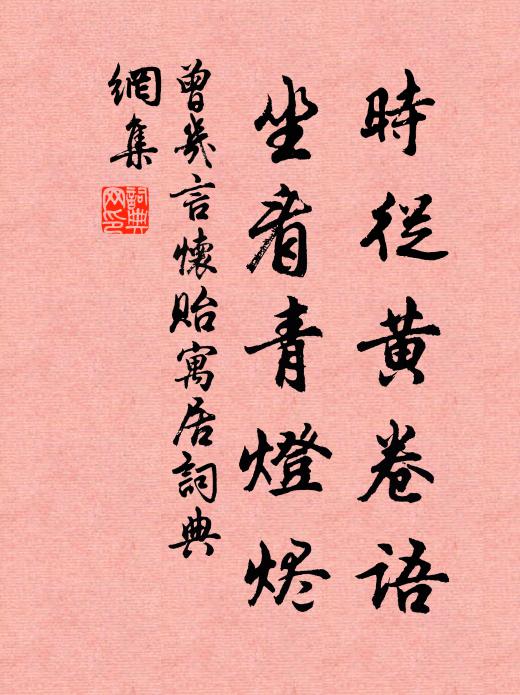 時從黃卷語
坐看青燈烬
曾幾言懷貽寓居詞典
網集
詞典網印